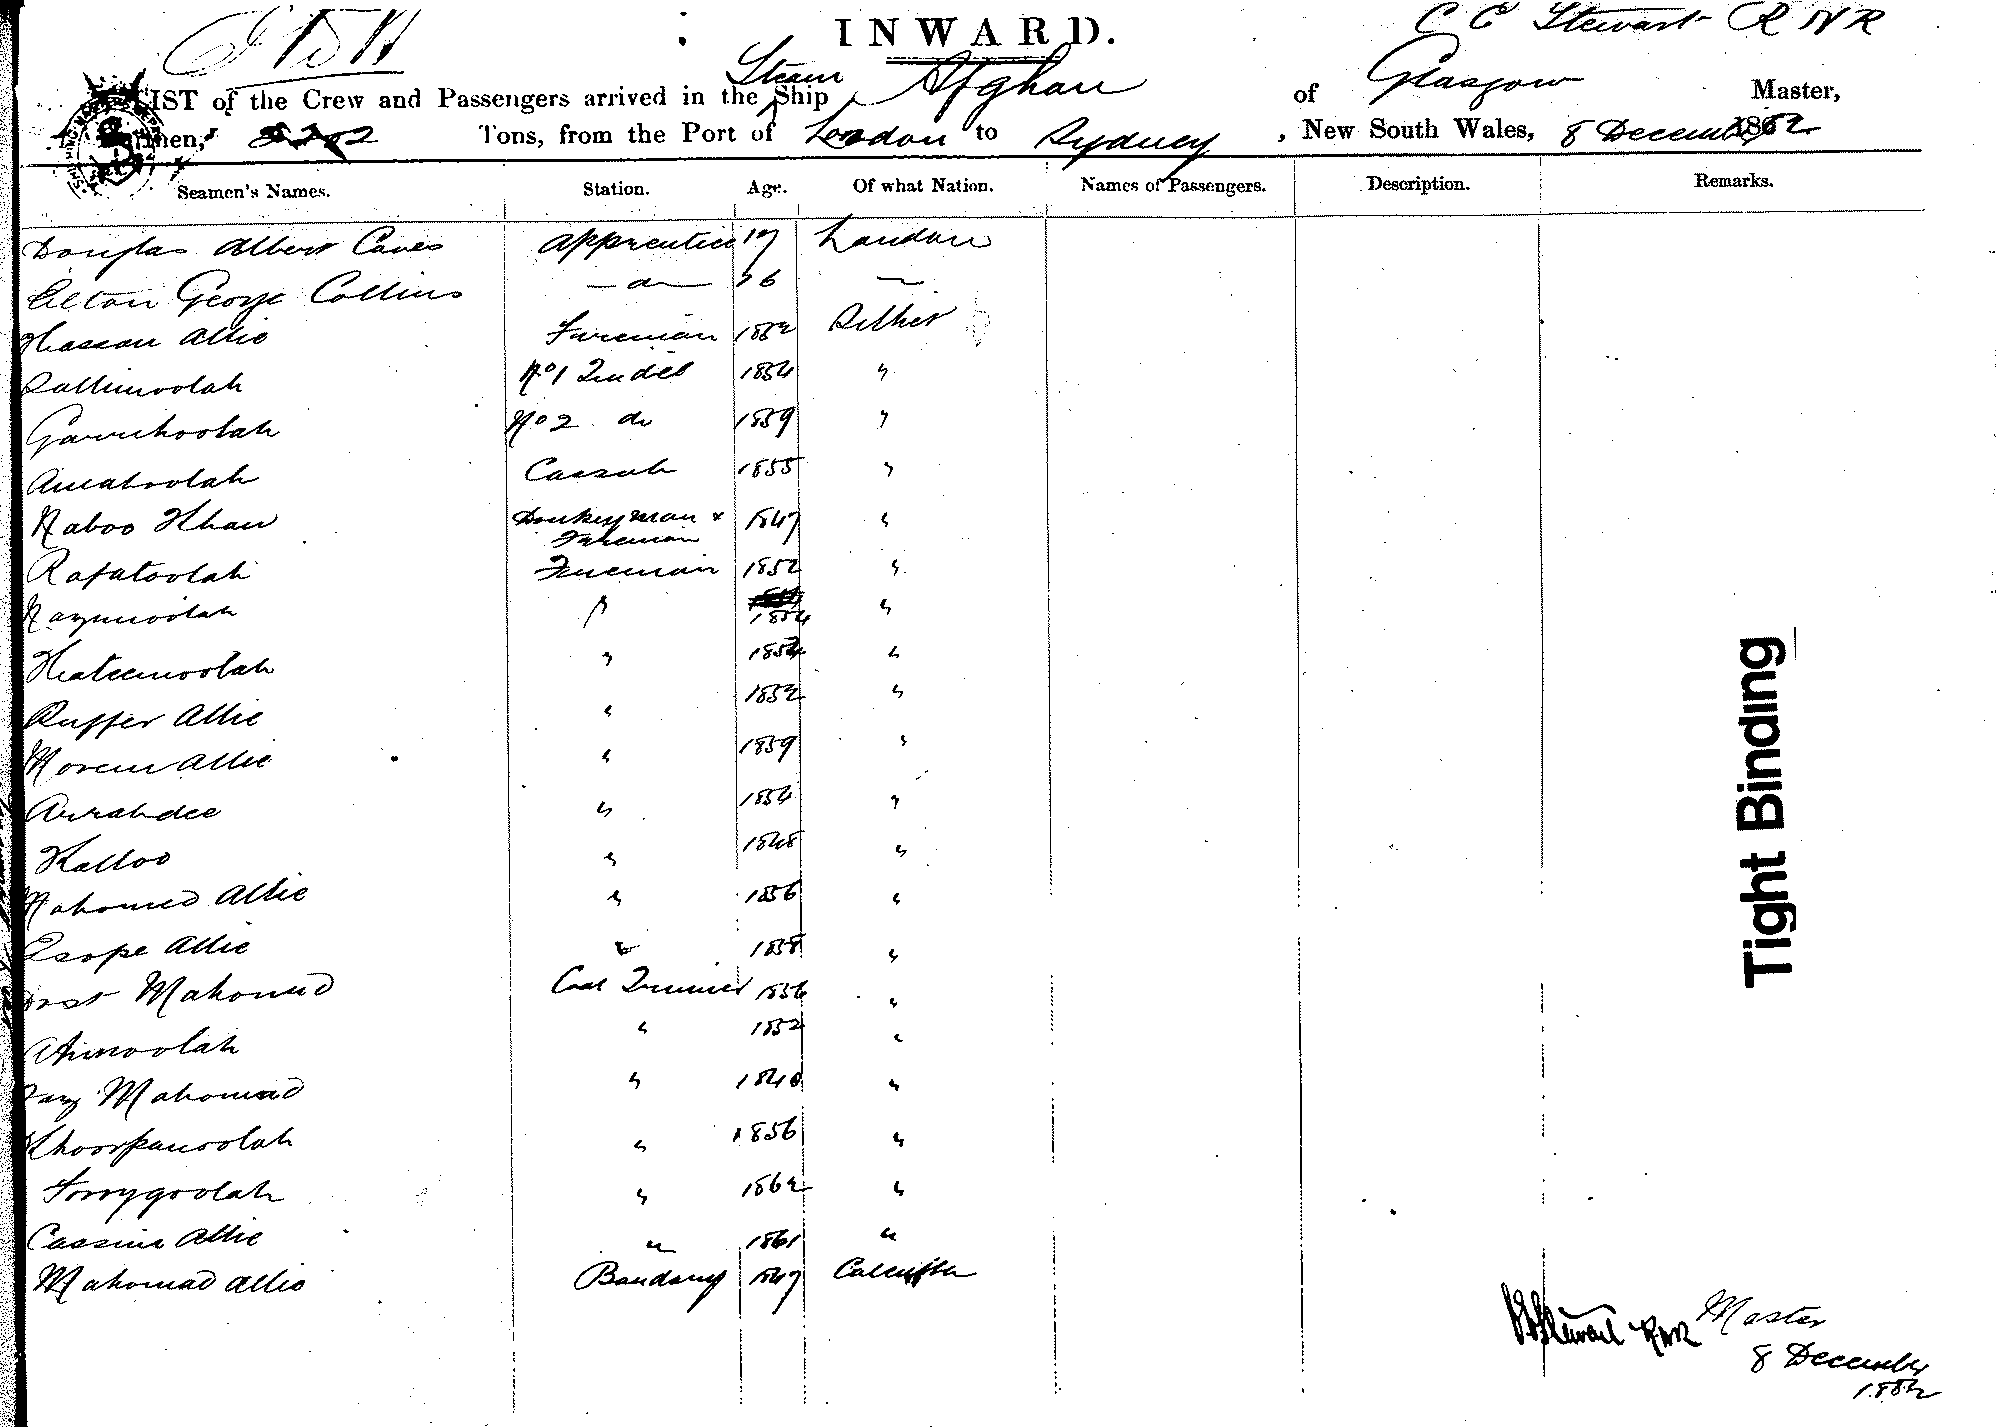 INWARD.
C C Stewart R N R
LIST of the Crew and Passengers arrived in the Steam Ship Afghan of Glasgow Master,
Tons, from the Port of London to Sydney, New South Wales, 8 December 1882
Seamen's Names. Station. Age. Of what Nation. Names of Passengers. Description. Remarks.
Douglas Albert Caves Apprentice 17 London
George Collins — do — 16 —
Hassan Allie Fireman 1852 Silhet
No 1 Tindel 1854 "
No 2 do 1859 "
Cassab 1855 "
Naboo Khan Donkeyman & Fireman 1847 "
Rafatoolah Fireman 1852 "
" 1854 "
" 1854 "
Ruffer Allie " 1852 "
Allie " 1859 "
" 1854 "
Kalloo " 1848 "
Mahomed Allie " 1856 "
Esope Allie " 1858 "
Dost Mahomud Coal Trimmer 1856 "
" 1852 "
Mahomad " 1840 "
" 1856 "
" 1862 "
Cassim Allie " 1861 "
Mahomad Allie Bandary 1847 Calcutta
Tight Binding
Stewart RNR Master
8 December
1882